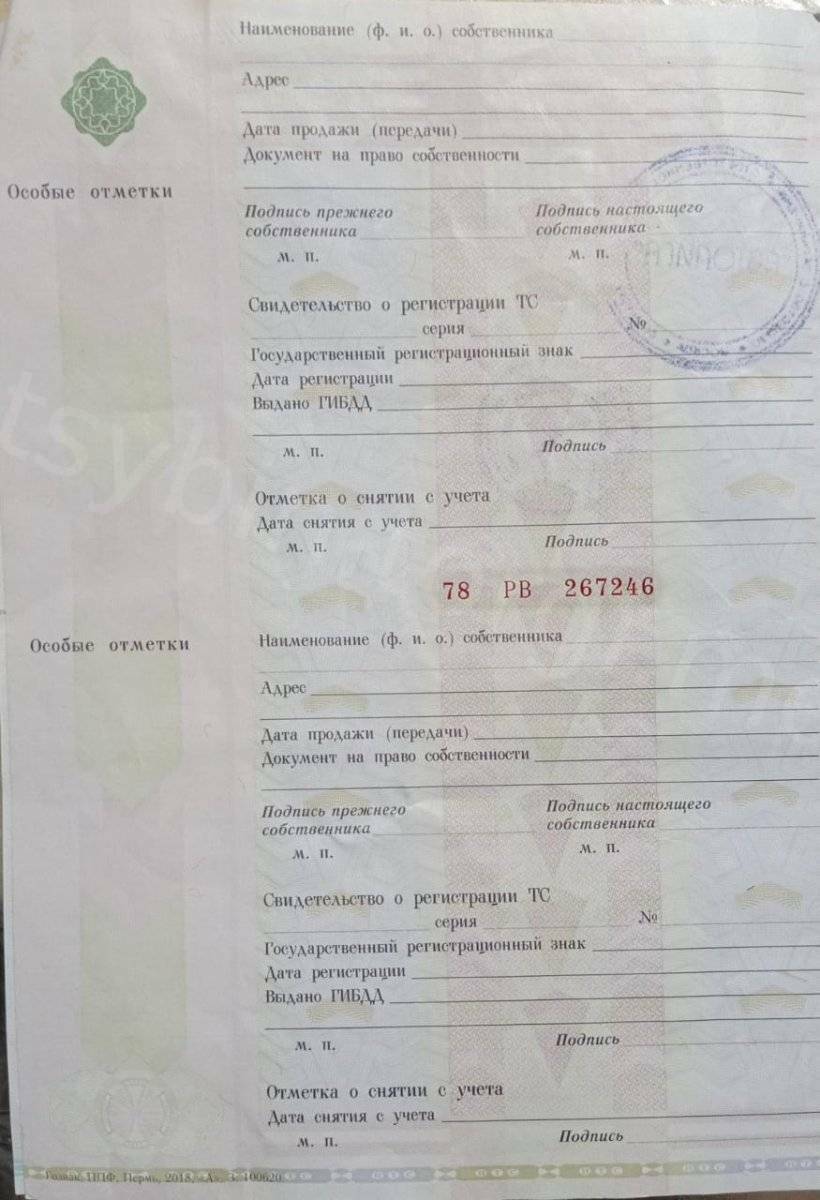 Наименование (ф. и. о.) собственника
Адрес
Дата продажи (передачи)
Документ на право собственности
Особые отметки
Подпись прежнего собственника
Подпись настоящего собственника
м. п.
м. п.
Свидетельство о регистрации ТС
серия №
Государственный регистрационный знак
Дата регистрации
Выдано ГИБДД
м. п. Подпись
Отметка о снятии с учета
Дата снятия с учета
м. п. Подпись
78 РВ 267246
Особые отметки
Наименование (ф. и. о.) собственника
Адрес
Дата продажи (передачи)
Документ на право собственности
Подпись прежнего собственника
Подпись настоящего собственника
м. п.
м. п.
Свидетельство о регистрации ТС
серия №
Государственный регистрационный знак
Дата регистрации
Выдано ГИБДД
м. п. Подпись
Отметка о снятии с учета
Дата снятия с учета
м. п. Подпись
Гознак, ППФ, Пермь, 2018, «А», З. 100620